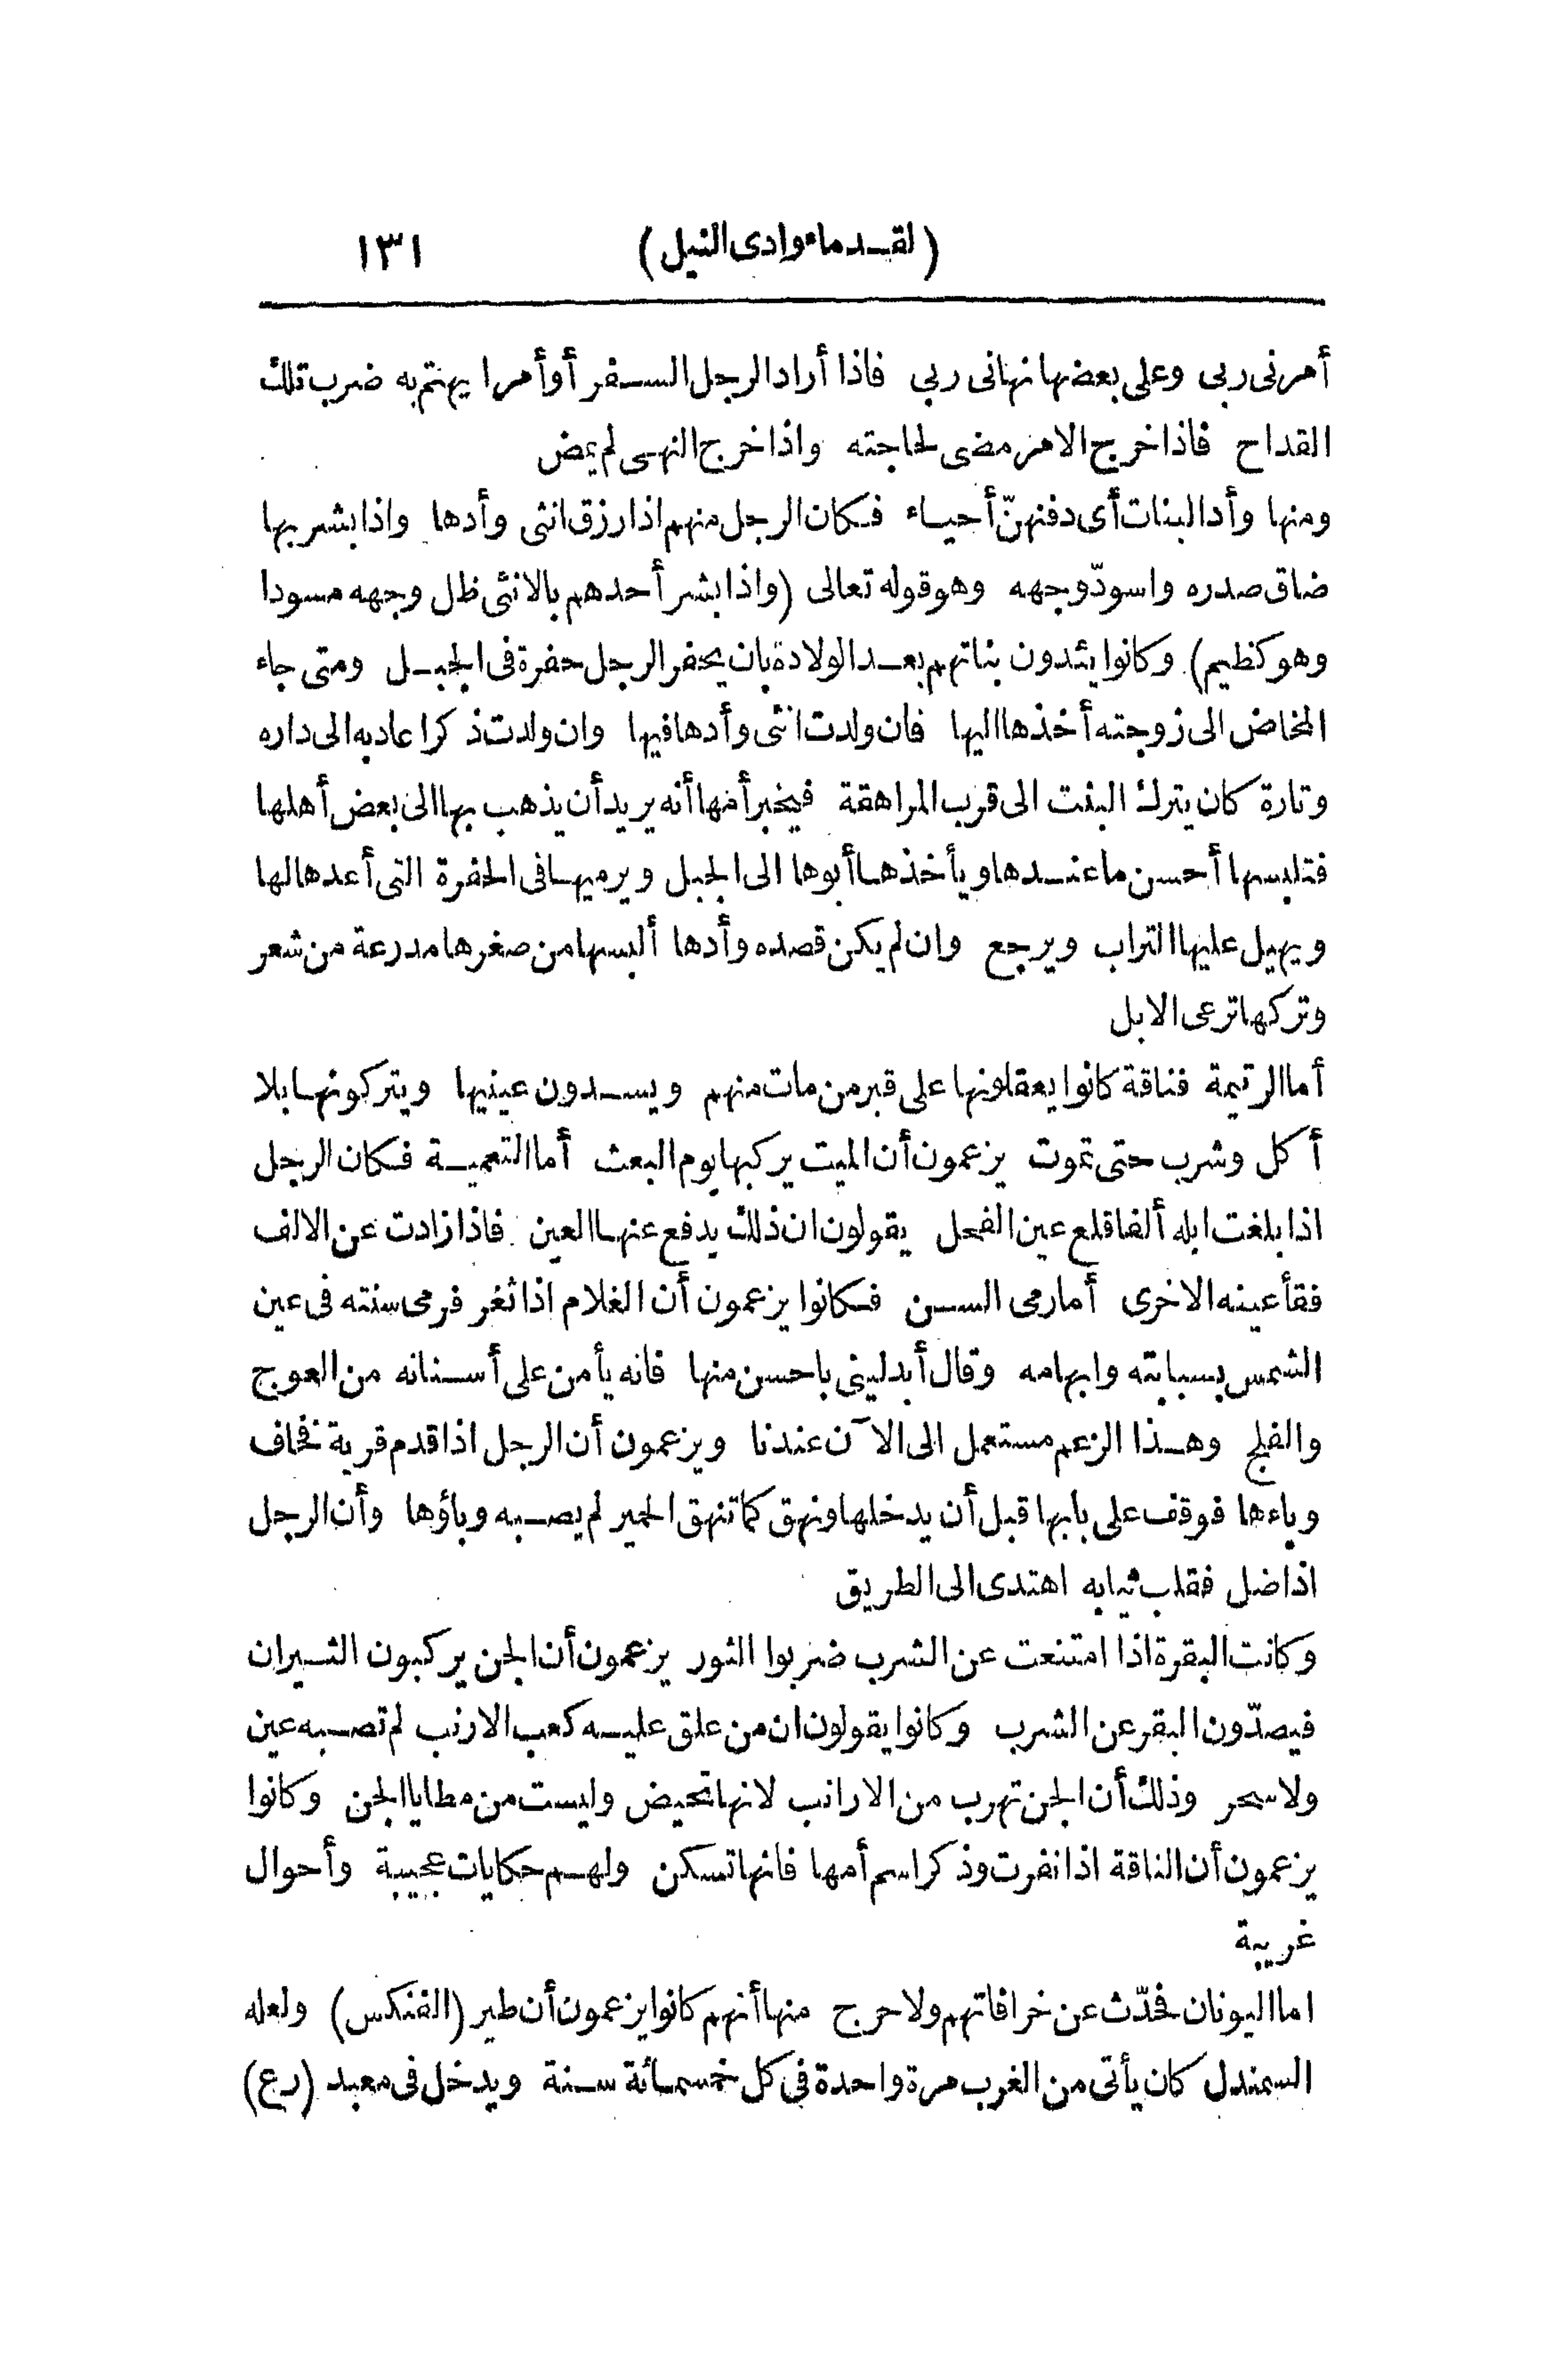 (لقدماء وادى النيل) ١٣١
أمرنى ربى وعلى بعضها نهانى ربى فاذا أراد الرجل السفر أو أمرا يهتم به ضرب تلك
القداح فاذا خرج الامر مضى لحاجته واذا خرج النهى لم يمض
ومنها وأد البنات أى دفنهنّ أحياء فكان الرجل منهم اذا رزق انثى وأدها واذا بشر بها
ضاق صدره واسودّ وجهه وهو قوله تعالى (واذا بشر أحدهم بالانثى ظل وجهه مسودا
وهو كظيم) وكانوا يئدون بناتهم بعد الولادة بان يحفر الرجل حفرة فى الجبل ومتى جاء
المخاض الى زوجته أخذها اليها فان ولدت انثى وأدها فيها وان ولدت ذكرا عاد به الى داره
وتارة كان يترك البنت الى قرب المراهقة فيخبر أمها أنه يريد أن يذهب بها الى بعض أهلها
فتلبسها أحسن ما عندها ويأخذها أبوها الى الجبل ويرميها فى الحفرة التى أعدها لها
ويهيل عليها التراب ويرجع وان لم يكن قصده وأدها ألبسها من صغرها مدرعة من شعر
وتركها ترعى الابل
أما الرتيمة فناقة كانوا يعقلونها على قبر من مات منهم ويسدون عينيها ويتركونها بلا
أكل وشرب حتى تموت يزعمون أن الميت يركبها يوم البعث أما التعمية فكان الرجل
اذا بلغت ابله ألفا قلع عين الفحل يقولون ان ذلك يدفع عنها العين فاذا زادت عن الالف
فقأ عينه الاخرى أما رمى السن فكانوا يزعمون أن الغلام اذا ثغر فرمى سنته فى عين
الشمس بسبابته وابهامه وقال أبدلينى باحسن منها فانه يأمن على أسنانه من العوج
والفلج وهذا الزعم مستعمل الى الآن عندنا ويزعمون أن الرجل اذا قدم قرية فخاف
وباءها فوقف على بابها قبل أن يدخلها ونهق كما تنهق الحمير لم يصبه وباؤها وأن الرجل
اذا ضل فقلب ثيابه اهتدى الى الطريق
وكانت البقرة اذا امتنعت عن الشرب ضربوا الثور يزعمون أن الجن يركبون الثيران
فيصدّون البقر عن الشرب وكانوا يقولون ان من علق عليه كعب الارنب لم تصبه عين
ولا سحر وذلك أن الجن تهرب من الارانب لانها تحيض وليست من مطايا الجن وكانوا
يزعمون أن الناقة اذا نفرت وذكر اسم أمها فانها تسكن ولهم حكايات عجيبة وأحوال
غريبة
اما اليونان فحدّث عن خرافاتهم ولا حرج منها أنهم كانوا يزعمون أن طير (الفنكس) ولعله
السمندل كان يأتى من الغرب مرة واحدة فى كل خمسمائة سنة ويدخل فى معبد (رع)